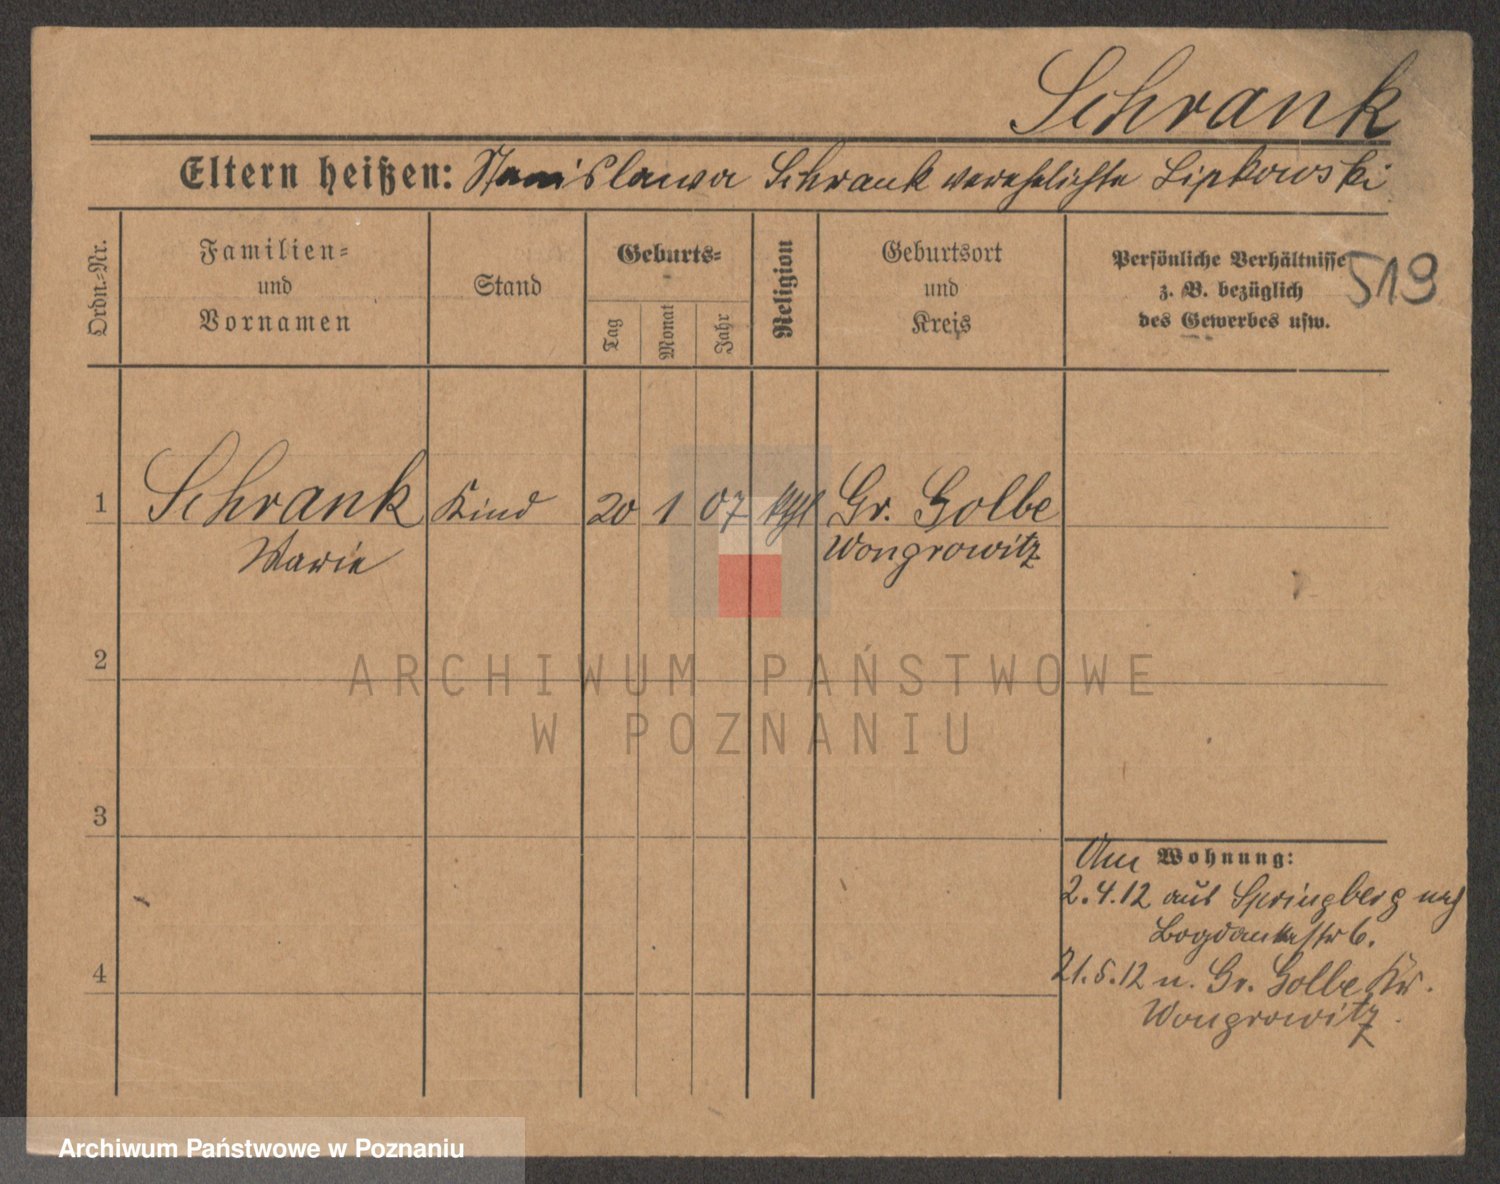 Schrank
Eltern heißen: Stanislawa Schrank verehelichte Lipkowski
Ordn.-Nr.
Familien-
und
Vornamen
Stand
Geburts-
Tag
Monat
Jahr
Religion
Geburtsort
und
Kreis
Persönliche Verhältnisse
z. B. bezüglich
des Gewerbes usw.
519
1 Schrank Kind 20 1 07 kthl Gr. Golle
Marie Wongrowitz
2
ARCHIWUM PAŃSTWOWE
W POZNANIU
3
Am Wohnung:
2.4.12 aus Springberg nach
Bogdankastr 6.
4
21.5.12 n. Gr. Golle Kr.
Wongrowitz.
Archiwum Państwowe w Poznaniu